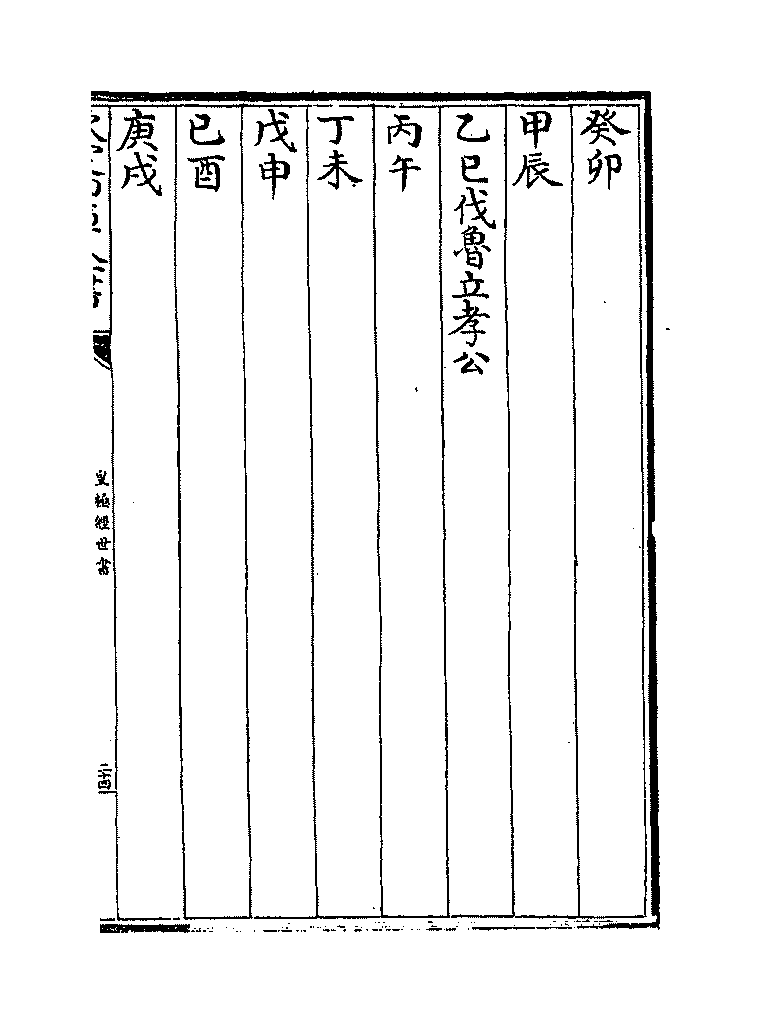 癸卯
甲辰
乙巳伐魯立孝公
丙午
丁未
戊申
己酉
庚戌
皇極經世書
二十四